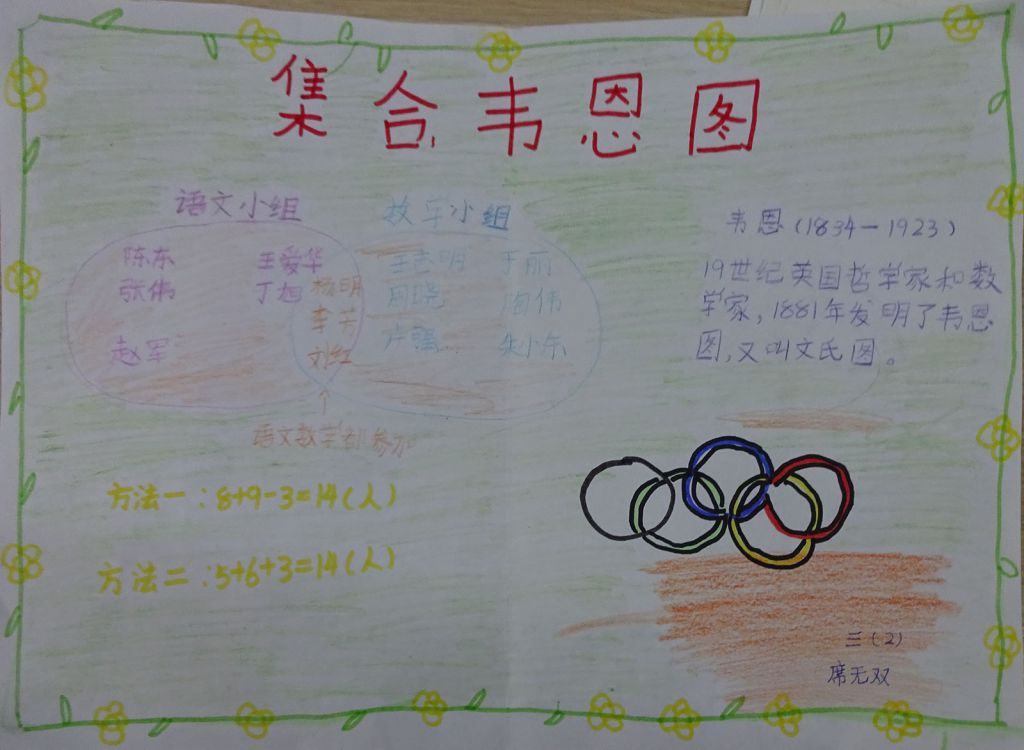 集合韦恩图
语文小组
数学小组
陈东 王爱华
张伟 丁旭
赵军
杨明
李芳
刘红
王志明 于丽
周晓 陶伟
卢强 朱小东
语文数学都参加
韦恩(1834-1923)
19世纪英国哲学家和数
学家,1881年发明了韦恩
图,又叫文氏图。
方法一:8+9-3=14(人)
方法二:5+6+3=14(人)
三(2)
席无双